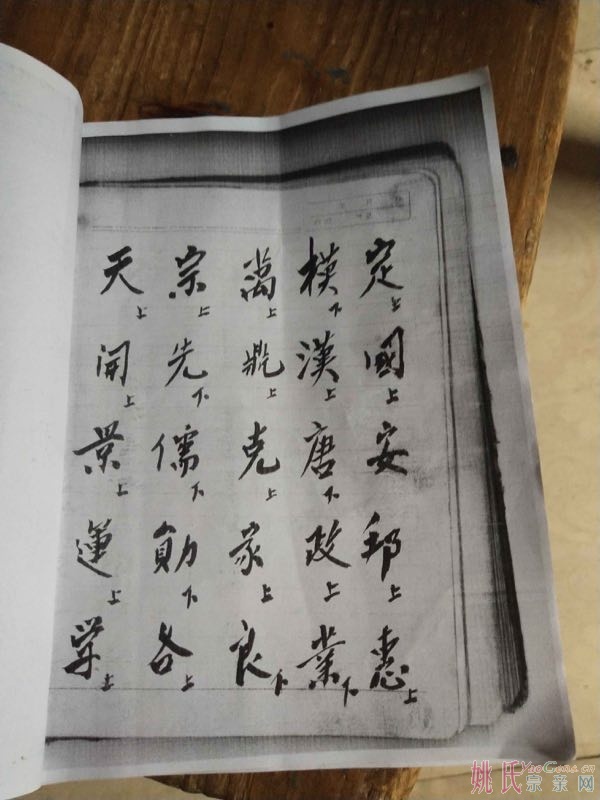 定上國上安邦上惠上
模下漢上唐下政上業下
萬上鼎上克上家上良下
宗上先下儒下勛下各上
天上開上景上運上学上
姚氏宗亲网